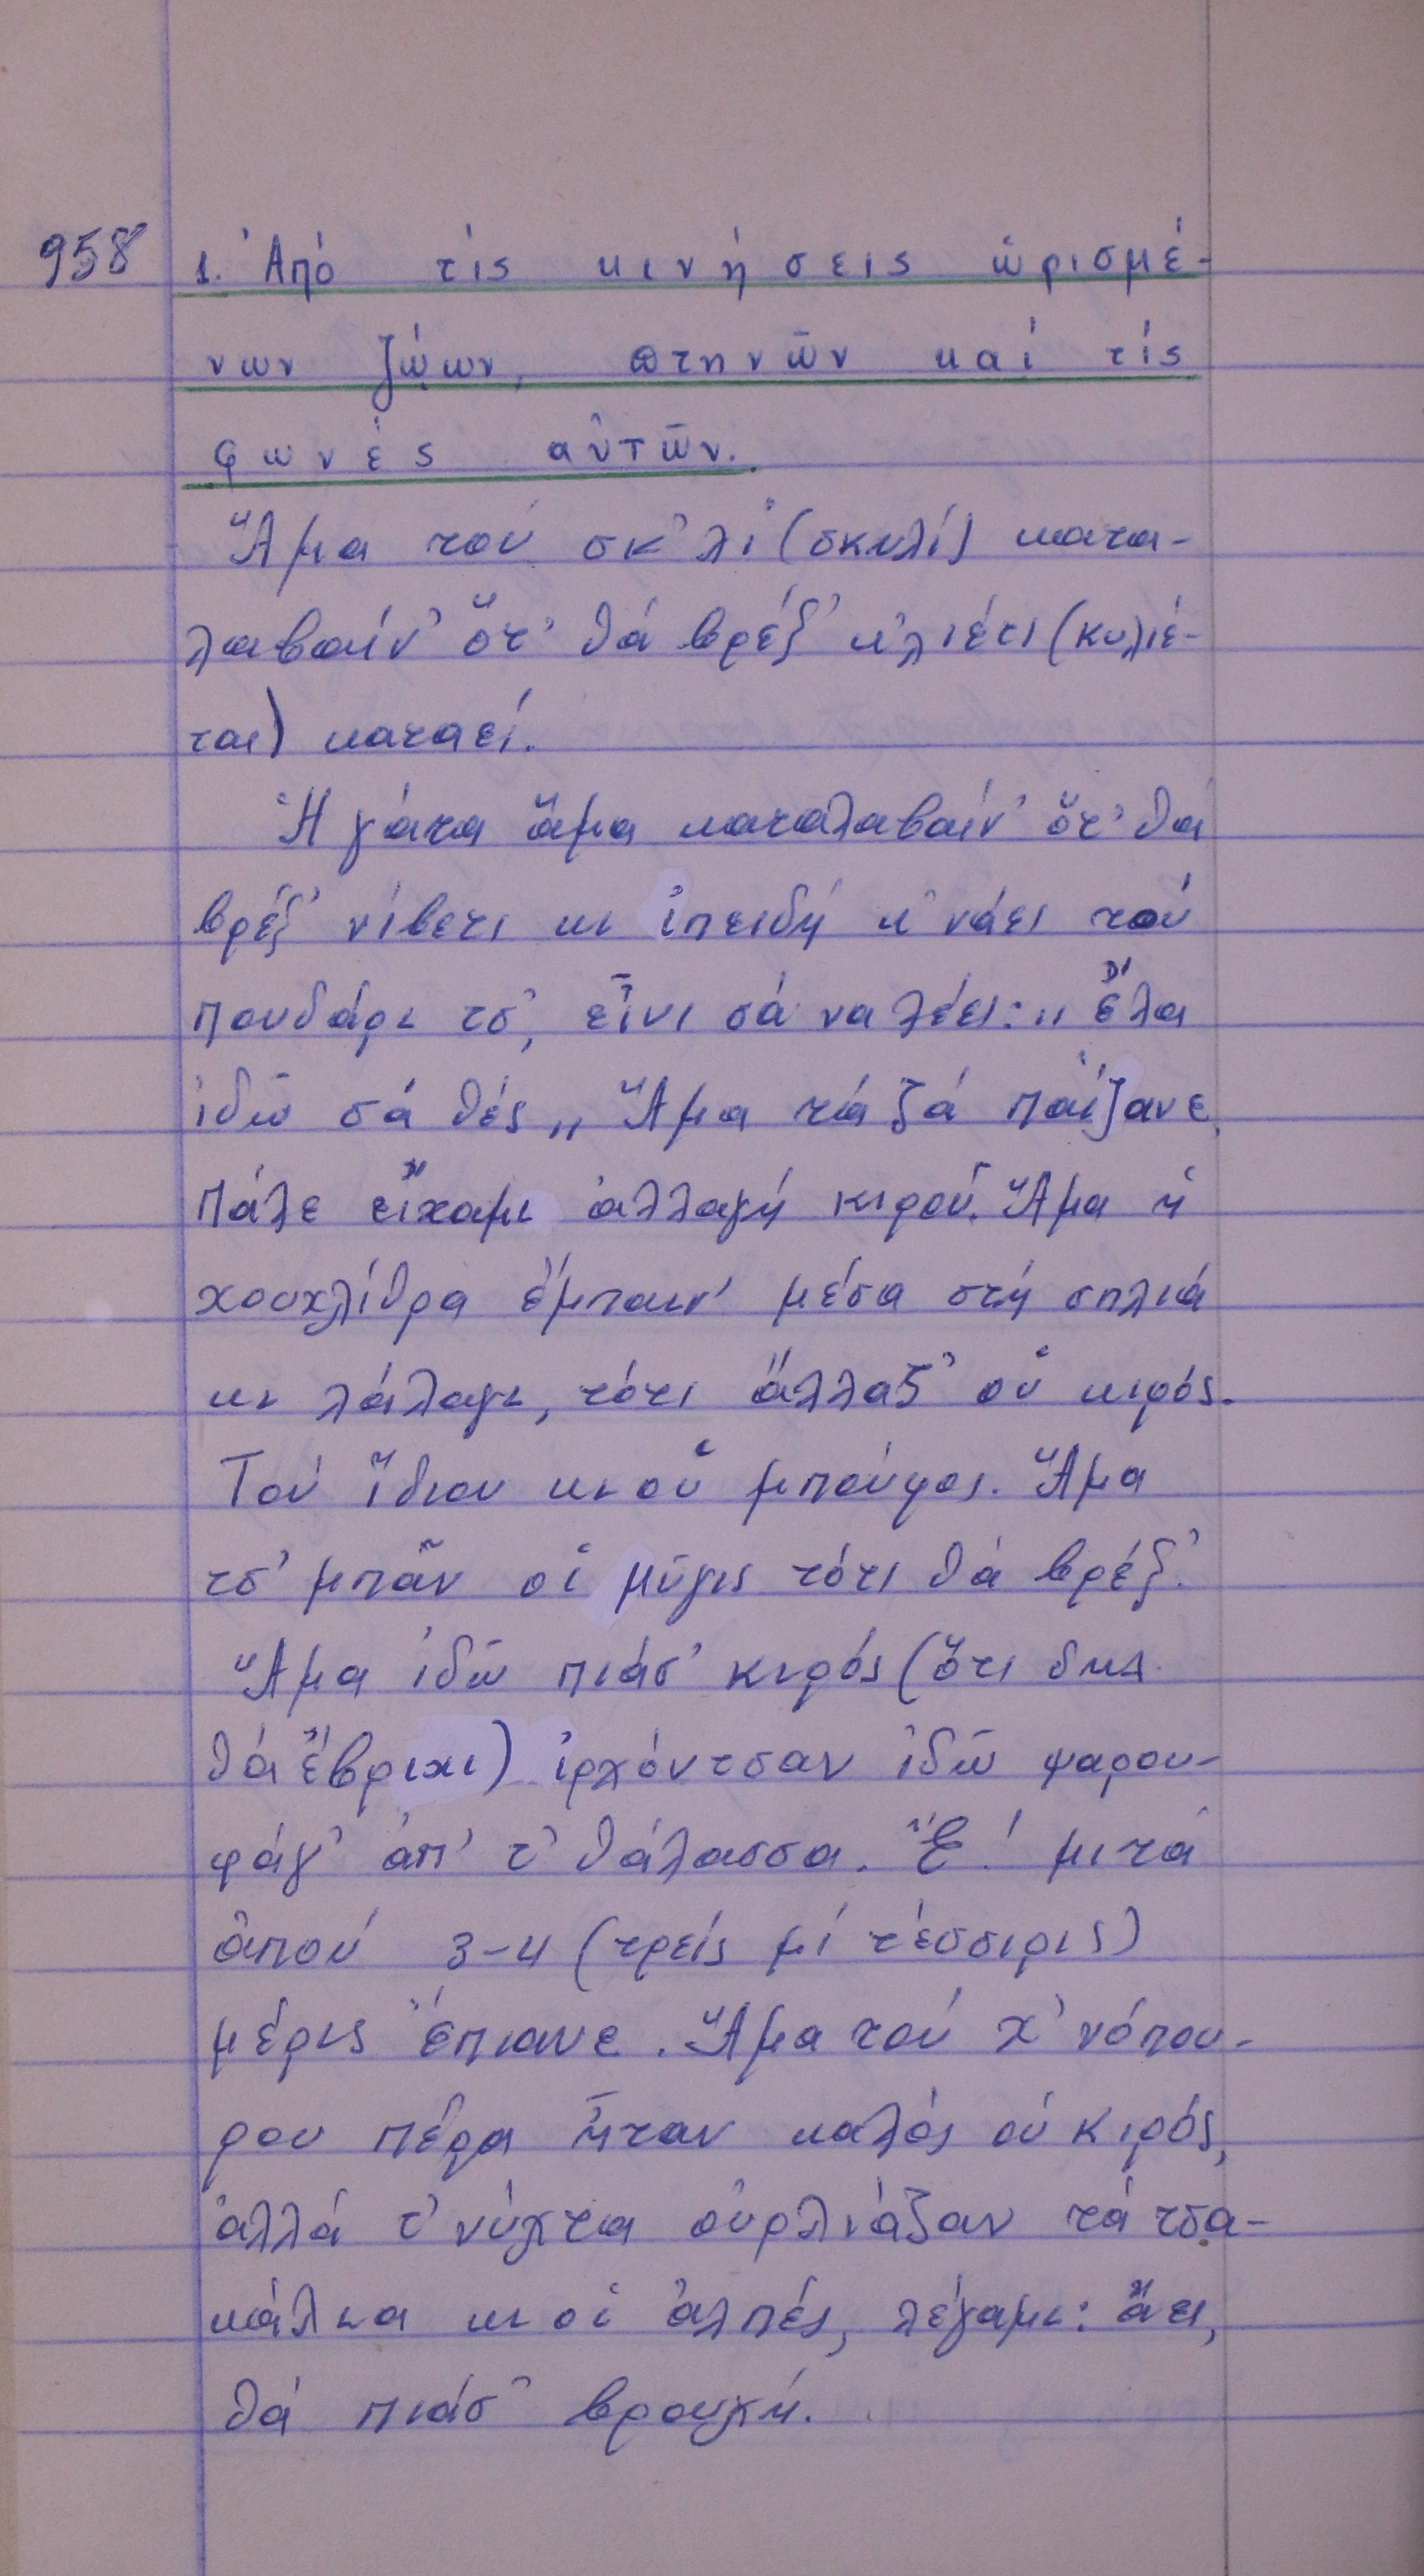 958
1. Ἀπό τίς κινήσεις ὡρισμέ-
νων ζώων, πτηνῶν καί τίς
φωνές αὐτῶν.
Ἅμα τού σκ'λί (σκυλί) κατα-
λαβαίν' ὅτ' θά βρέξ' κ'λιέτι (κυλιέ-
ται) καταεί.
Ἡ γάτα ἅμα καταλαβαίν' ὅτ' θά
βρέξ' νίβετι κι ἰπειδή κ'νάει τού
πουδάρι τσ', εἶνι σά να λέει: „ ἔλα
ἰδῶ σά θές „ Ἅμα τά ζά παίζανε,
πάλε εἴχαμι ἀλλαγή κιρού. Ἅμα ἡ
χουχλίθρα ἔμπαιν' μέσα στή σπλιά
κι λάλαγι, τότι ἄλλαζ' οὑ κιρός.
Τού ἴδιου κι οὑ μπούφος. Ἅμα
τσ' μπᾶν οἱ μῦγις τότι θά βρέξ'.
Ἅμα ἰδῶ πιάσ' κιρός (ὅτι δηλ.
θά ἔβριχι) ἰρχόντσαν ἰδῶ ψαρου-
φάγ' ἀπ' τ' θάλασσα. Ἔ! μιτά
ἀπού 3-4 (τρεῖς μί τέσσιρις)
μέρις ἔπιανε. Ἅμα τού χ'νόπου-
ρου πέρα ἦταν καλός οὑ κιρός,
ἀλλά τ' νύχτα οὐρλιάζαν τά τσα-
κάλια κι οἱ ἀλπές, λέγαμι: ἄει,
θά πιάσ' βρουχή.